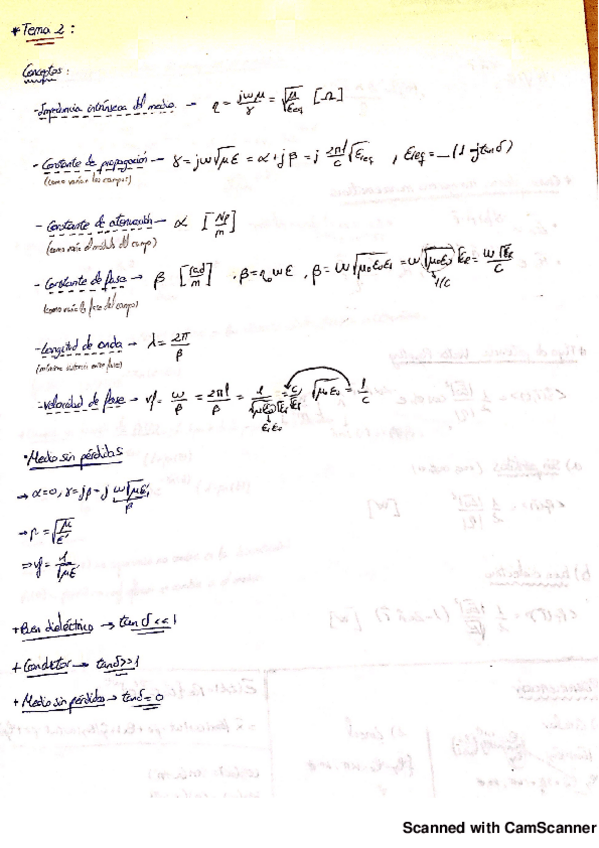 * Tema 2:
Conceptos:
- Impedancia intrínseca del medio → η = jωμ/γ = √(μ/εeq) [Ω]
- Constante de propagación → γ = jω√με = α + jβ = j 2πf/c √εreq , εreq = _ (1 - j tanδ)
(como varían los campos)
- Constante de atenuación → α [Np/m]
(como varía el módulo del campo)
- Constante de fase → β [rad/m] . β = ωε , β = ω√μ₀ε₀εr = ω√μ₀ε₀ √εr = ω√εr/c
1/c
(como varía la fase del campo)
- Longitud de onda → λ = 2π/β
(mínima distancia entre fases)
- Velocidad de fase → vf = ω/β = 2πf/β = 1/√με = c/√εr √μ₀ε₀ = 1/c
εrε₀
• Medio sin pérdidas
→ α = 0, γ = jβ = jω√με'
β
→ η = √(μ/ε')
⇒ vf = 1/√με'
+ Buen dieléctrico → tanδ << 1
+ Conductor → tanδ >> 1
+ Medio sin pérdidas → tanδ = 0
Scanned with CamScanner